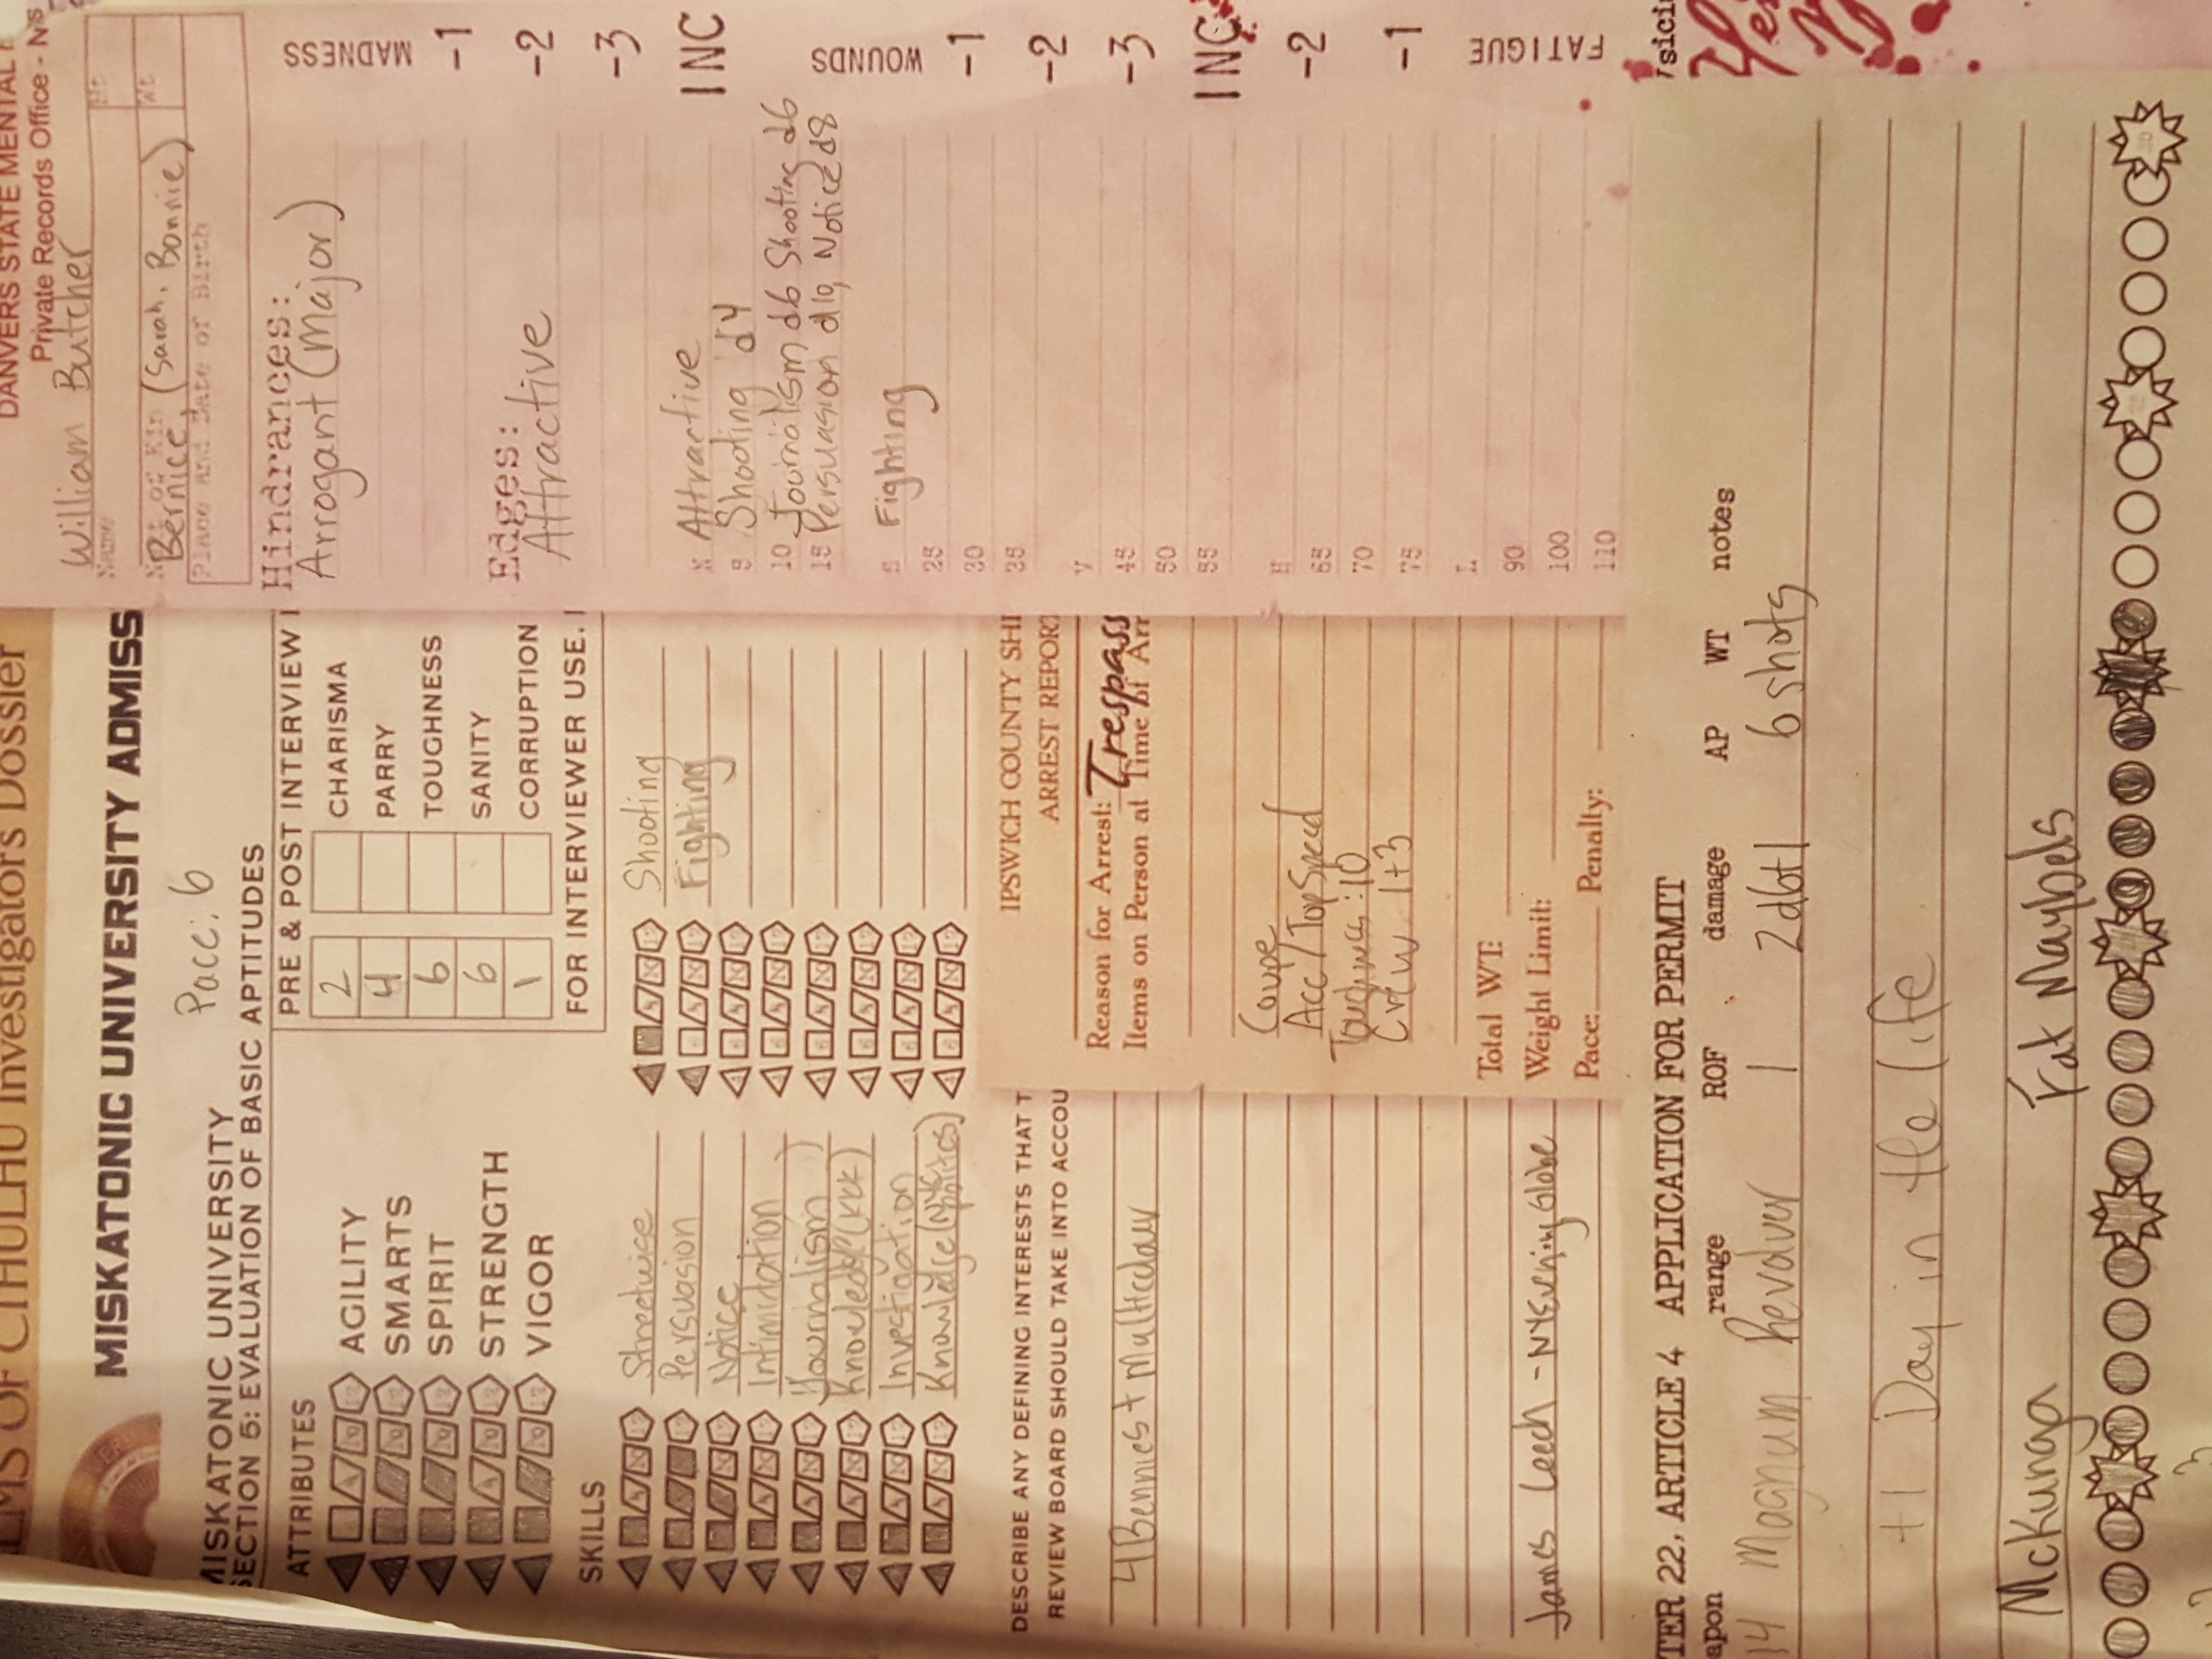 EMS OF CTHULHU Investigators Dossier
MISKATONIC UNIVERSITY ADMISS
MISKATONIC UNIVERSITY
Pace: 6
SECTION 5: EVALUATION OF BASIC APTITUDES
ATTRIBUTES
AGILITY
SMARTS
SPIRIT
STRENGTH
VIGOR
PRE & POST INTERVIEW
2 CHARISMA
4 PARRY
6 TOUGHNESS
6 SANITY
1 CORRUPTION
FOR INTERVIEWER USE.
SKILLS
Streetwise
Persuasion
Notice
Intimidation
Journalism
Knowledge (KKK)
Investigation
Knowledge (NYC Politics)
Shooting
Fighting
DESCRIBE ANY DEFINING INTERESTS THAT T
REVIEW BOARD SHOULD TAKE INTO ACCOU
4 Bennies +
James Leech - NY Evening Globe
IPSWICH COUNTY SHE
ARREST REPORT
Reason for Arrest: Trespass
Items on Person at Time of Arr
Coupe
Acc / Top Speed
Toughness: 10
Crew 1+3
Total WT:
Weight Limit:
Pace: Penalty:
DANVERS STATE MENTAL
Private Records Office - N
William Butcher
Name
Ht
Next of Kin
Wt
Bernice, (Sarah, Bonnie)
Place and Date of Birth
Hindrances:
Arrogant (Major)
Edges:
Attractive
N Attractive
5 Shooting d4
10 Journalism d6 Shooting d6
15 Persuasion d10, Notice d8
S Fighting
25
30
35
V
45
50
55
H
65
70
75
L
90
100
110
MADNESS
-1
-2
-3
INC
WOUNDS
-1
-2
-3
INC
-2
-1
FATIGUE
TER 22, ARTICLE 4 APPLICATION FOR PERMIT
apon range ROF damage AP WT notes
14 Magnum Revolver 1 2d6+1 6 shots
+1 Day in the life
McKunga Fat Maybels